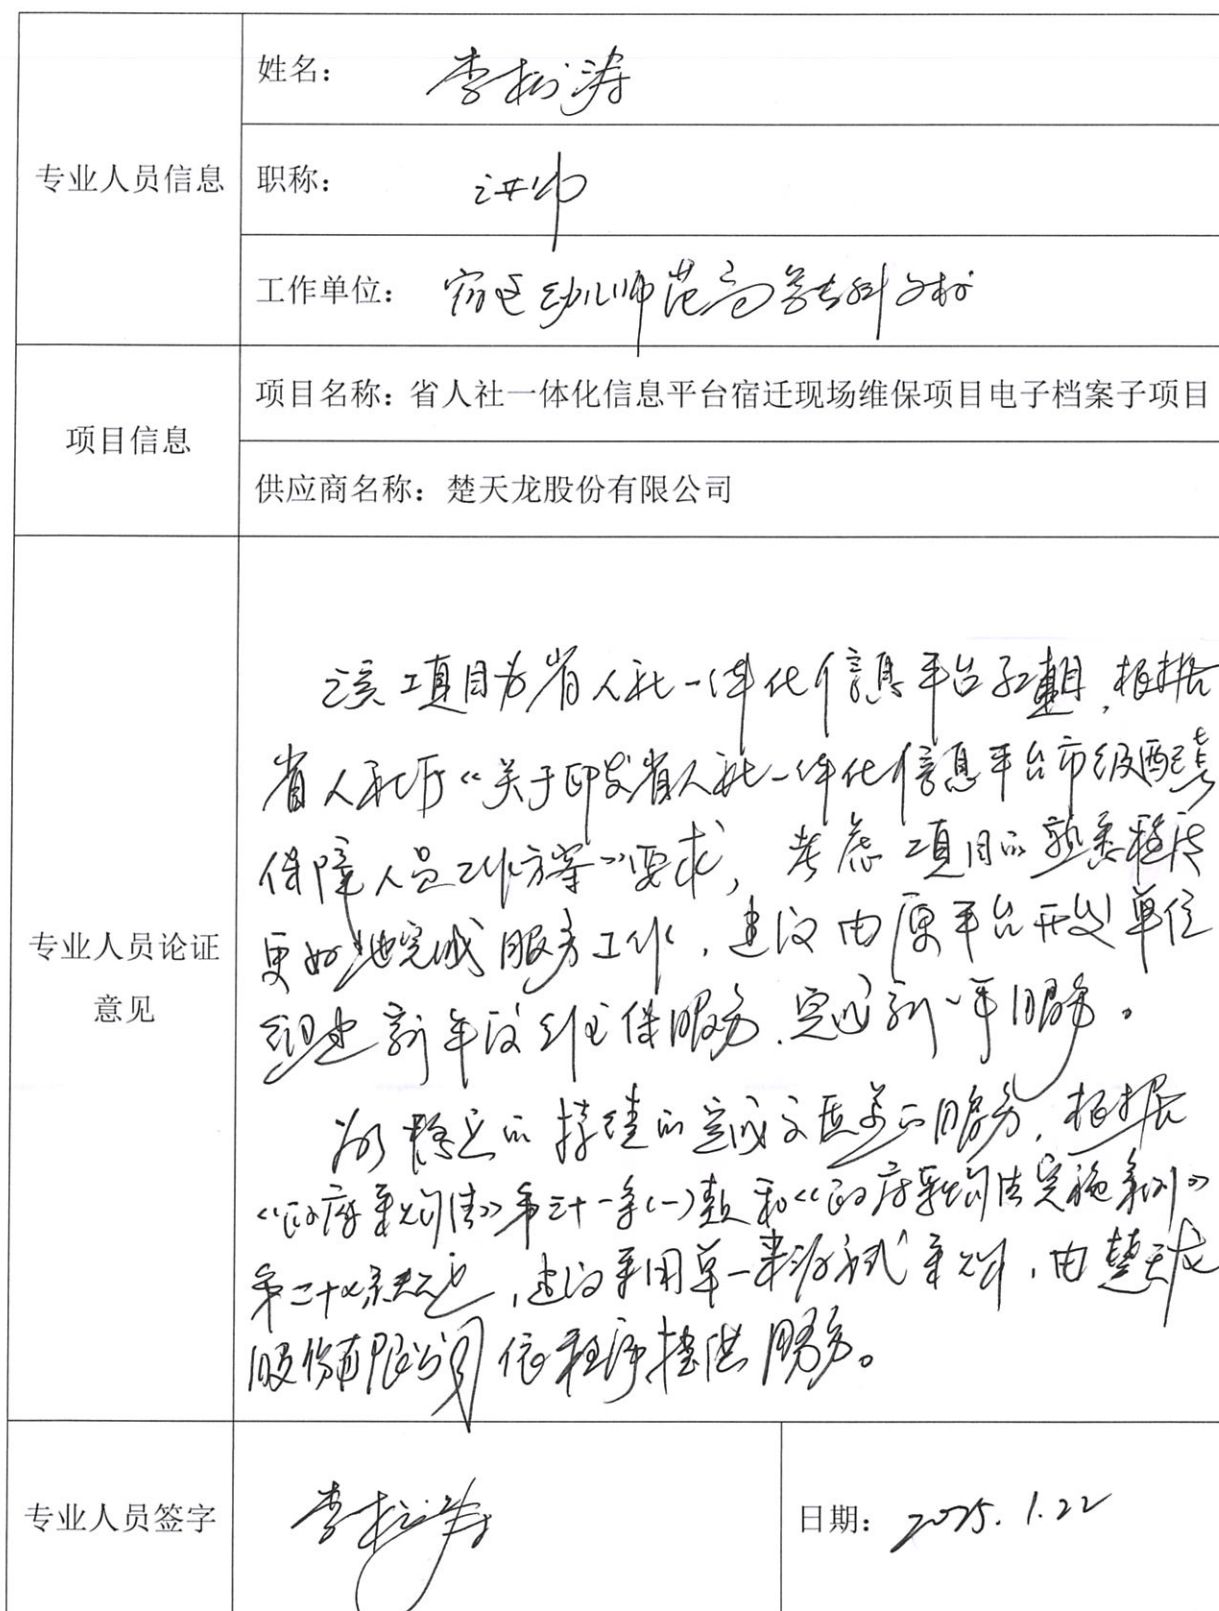 姓名： 李松涛
专业人员信息
职称： 讲师
工作单位： 宿迁幼儿师范高等专科学校
项目信息
项目名称：省人社一体化信息平台宿迁现场维保项目电子档案子项目
供应商名称：楚天龙股份有限公司
该项目为省人社一体化信息平台子项目，根据
省人社厅《关于印发省人社一体化信息平台市级配套
保障人员工作方案》要求，考虑项目的熟悉程度
更好地完成服务工作，建议由原平台开发单位
新年度维保服务，完成新一年服务。
专业人员论证
意见
为稳定的持续的完成的服务，根据
《政府采购法》第三十一条(一)款和《政府采购法实施条例》
第二十七条规定，建议采用单一来源方式采购，由楚天龙
股份有限公司依程序提供服务。
专业人员签字 李松涛
日期：2025.1.22